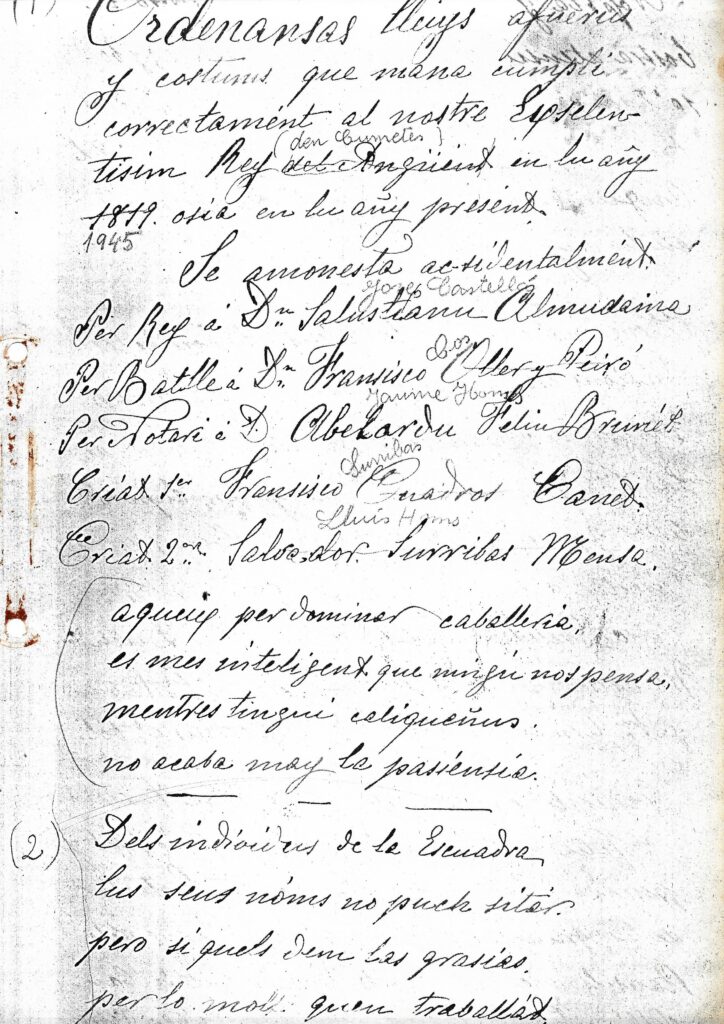 (1)
Ordenansas lleys afuerus
y costums que mana cumpli
correctament al nostre Exselen-
(den Cumetes)
tisim Rey del Angüent en lu añy
1819. osia en lu añy present.
1945
Se amonesta acsidentalmént.
Josep Castelló
Per Rey á Dn Salustianu Almudaina
Per Batlle á Dn Fransisco Oller y Peiró
Jaume Homs
Per Notari á D. Abelardu Feliu Brunét
Surribas
Criat 1er Fransisco Cuadros Canet.
Lluis Homs
Criat 2on Salvador Surribas Mensa.
aqueix per dominar caballeria,
es mes inteligent que ningú nos pensa,
mentres tingui caliqueñus.
no acaba may la pasiensia.
(2)
Dels individus de la Escuadra
lus seus nóms no puch sitár.
pero si quels dem las grasias.
per lo molt quen traballát